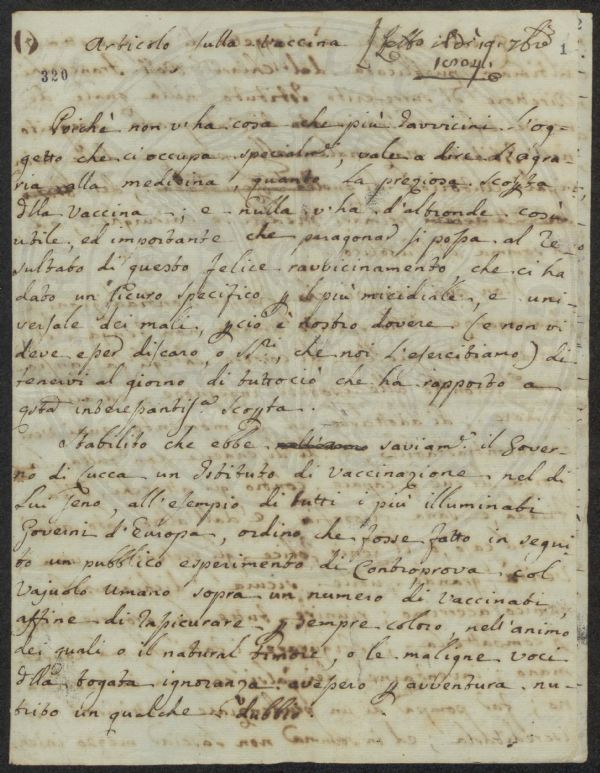 Articolo sulla vaccina [Letto il dì 19. 7bre
1804.
320
1
Poichè non v'ha cosa che più ravvicini l'og-
getto che ci occupa specialmte, vale a dire l'agra-
ria alla medicina, quanto la preziosa scopta
dlla vaccina, e nulla v'ha d'altronde così
utile, ed importante che paragonar si possa al re-
sultato di questo felice ravvicinamento, che ci ha
dato un sicuro specifico p il più micidiale, e uni-
versale dei mali, pciò è nostro dovere (e non vi
deve esser discaro, o SSri, che noi l'esercitiamo) di
tenervi al giorno di tuttociò che ha rapporto a
qsta interessantissa scopta.
Stabilito che ebbe saviamte il Gover-
no di Lucca un Istituto di vaccinazione nel di
Lui seno, all'esempio di tutti i più illuminati
Governi d'Europa, ordinò che fosse fatto in segui
to un pubblico esperimento di Controprova col
Vajuolo Umano sopra un numero di vaccinati,
affine di rassicurare p sempre coloro, nell'animo
dei quali o il natural timore, o le maligne voci
dlla togata ignoranza avessero p avventura nu-
trito un qualche dubbio